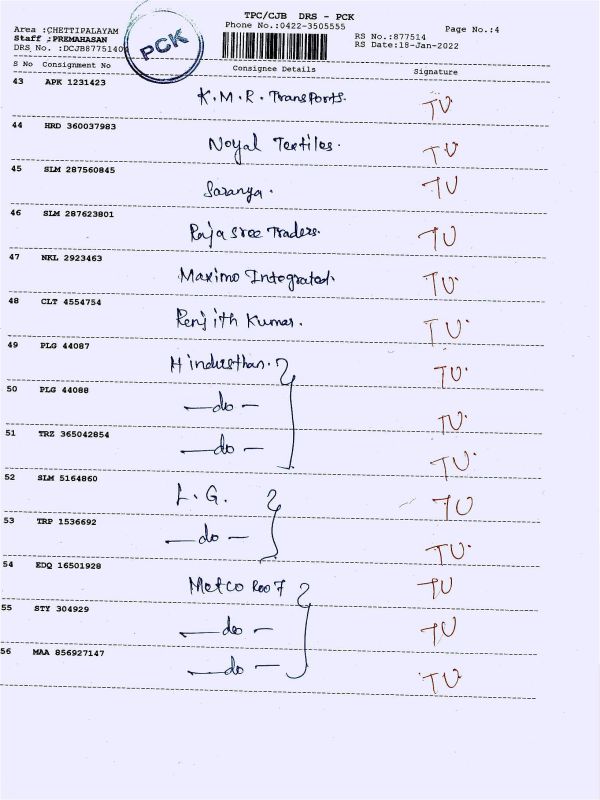 TPC/CJB DRS - PCK
Phone No.:0422-3505555
Page No.:4
Area :CHETTIPALAYAM
Staff :PREMAHASAN
DRS No. :DCJB8775140
RS No.:877514
RS Date:18-Jan-2022
PCK
S No Consignment No Consignee Details Signature
43 APK 1231423
K.M.R. Transports. TU
44 HRD 360037983
Noyal Textiles. TU
45 SLM 287560845
Saranya. TU
46 SLM 287623801
Raja sree Traders. TU
47 NKL 2923463
Maximo Integrated. TU.
48 CLT 4554754
Renjith Kumar. TU.
49 PLG 44087
Hindusthan. TU.
50 PLG 44088
—do— TU.
51 TRZ 365042854
—do— TU.
52 SLM 5164860
L.G. TU
53 TRP 1536692
—do— TU.
54 EDQ 16501928
Metco Roof TU
55 STY 304929
—do— TU
56 MAA 856927147
—do— TU